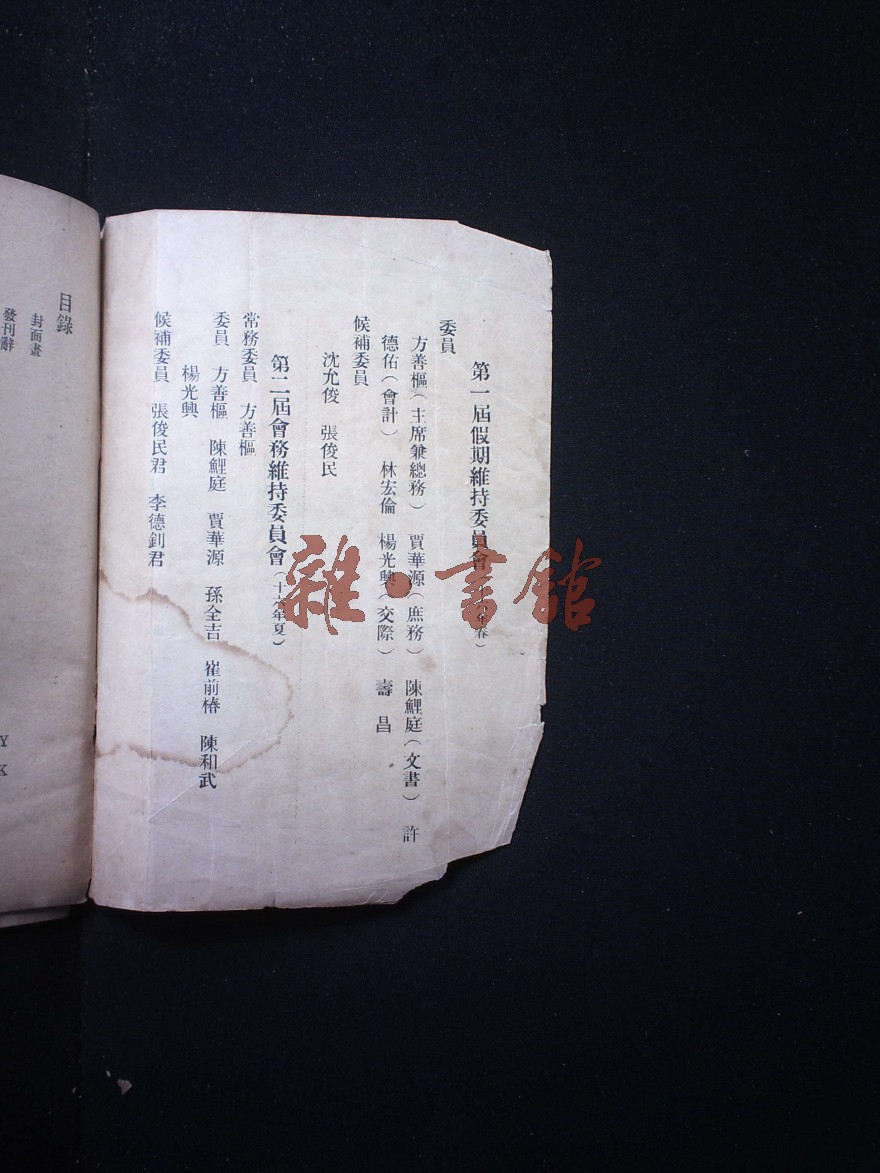 第一屆假期維持委員會
春）
委員
方善樞（主席兼總務）　賈華源（庶務）　陳鯉庭（文書）　許
德佑（會計）　林宏倫　楊光興（交際）　壽　昌
候補委員
沈允俊　張俊民
第二屆會務維持委員會（十六年夏）
常務委員　方善樞
委員　方善樞　陳鯉庭　賈華源　孫全吉　崔前椿　陳和武
楊光興
候補委員　張俊民君　李德釗君
目錄
封面畫
發刊辭
Y
K
雜·書館